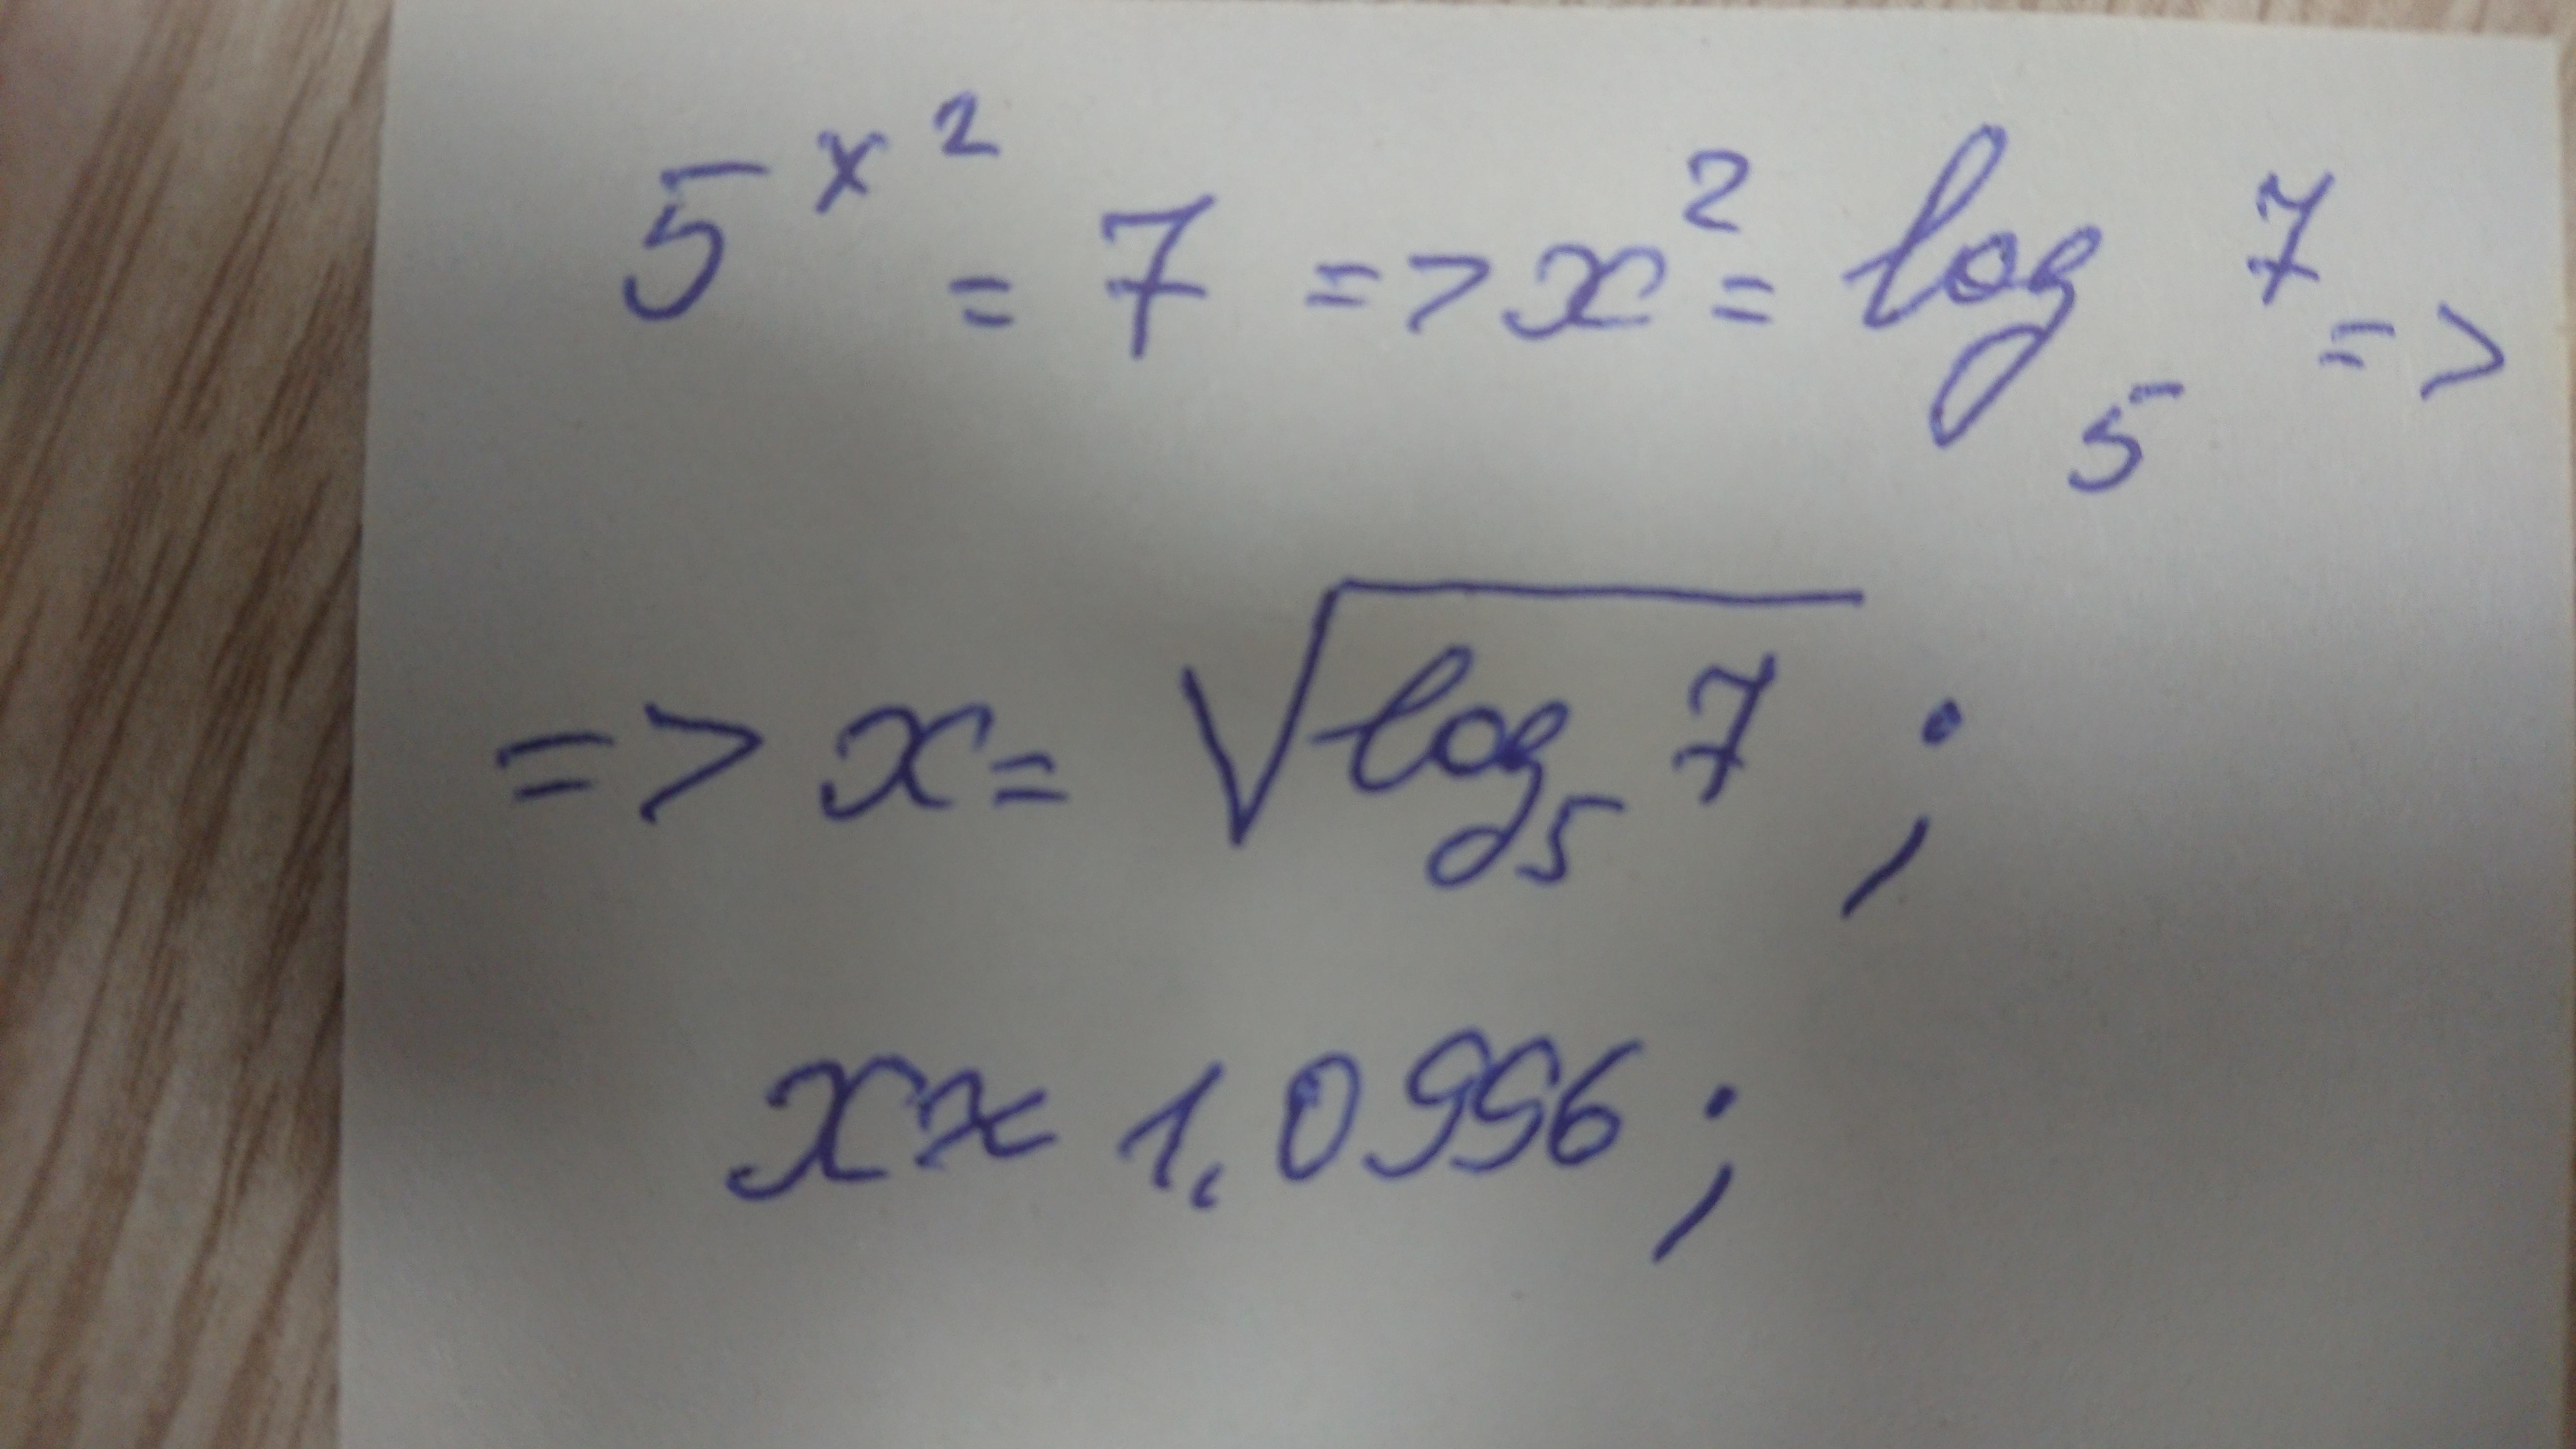 5^{x^2} = 7 => x^2 = log_5 7 =>
=> x = √(log_5 7) ;
x ≈ 1,0996 ;